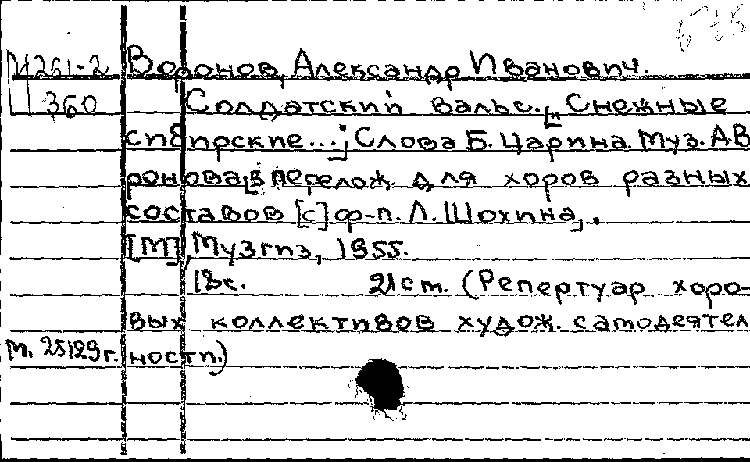 261-2 Воронов, Александр Иванович.
360 Солдатский вальс. [„Снежные
сибирские...“] Слова Б. Царина. Муз. А. Во-
ронова. В перелож. для хоров разных
составов [с] ф-п. Л. Шохина.
[М], Музгиз, 1955.
12с. 21см. (Репертуар хоро-
вых коллективов худож. самодеятель
М. 25129 г. ности.)